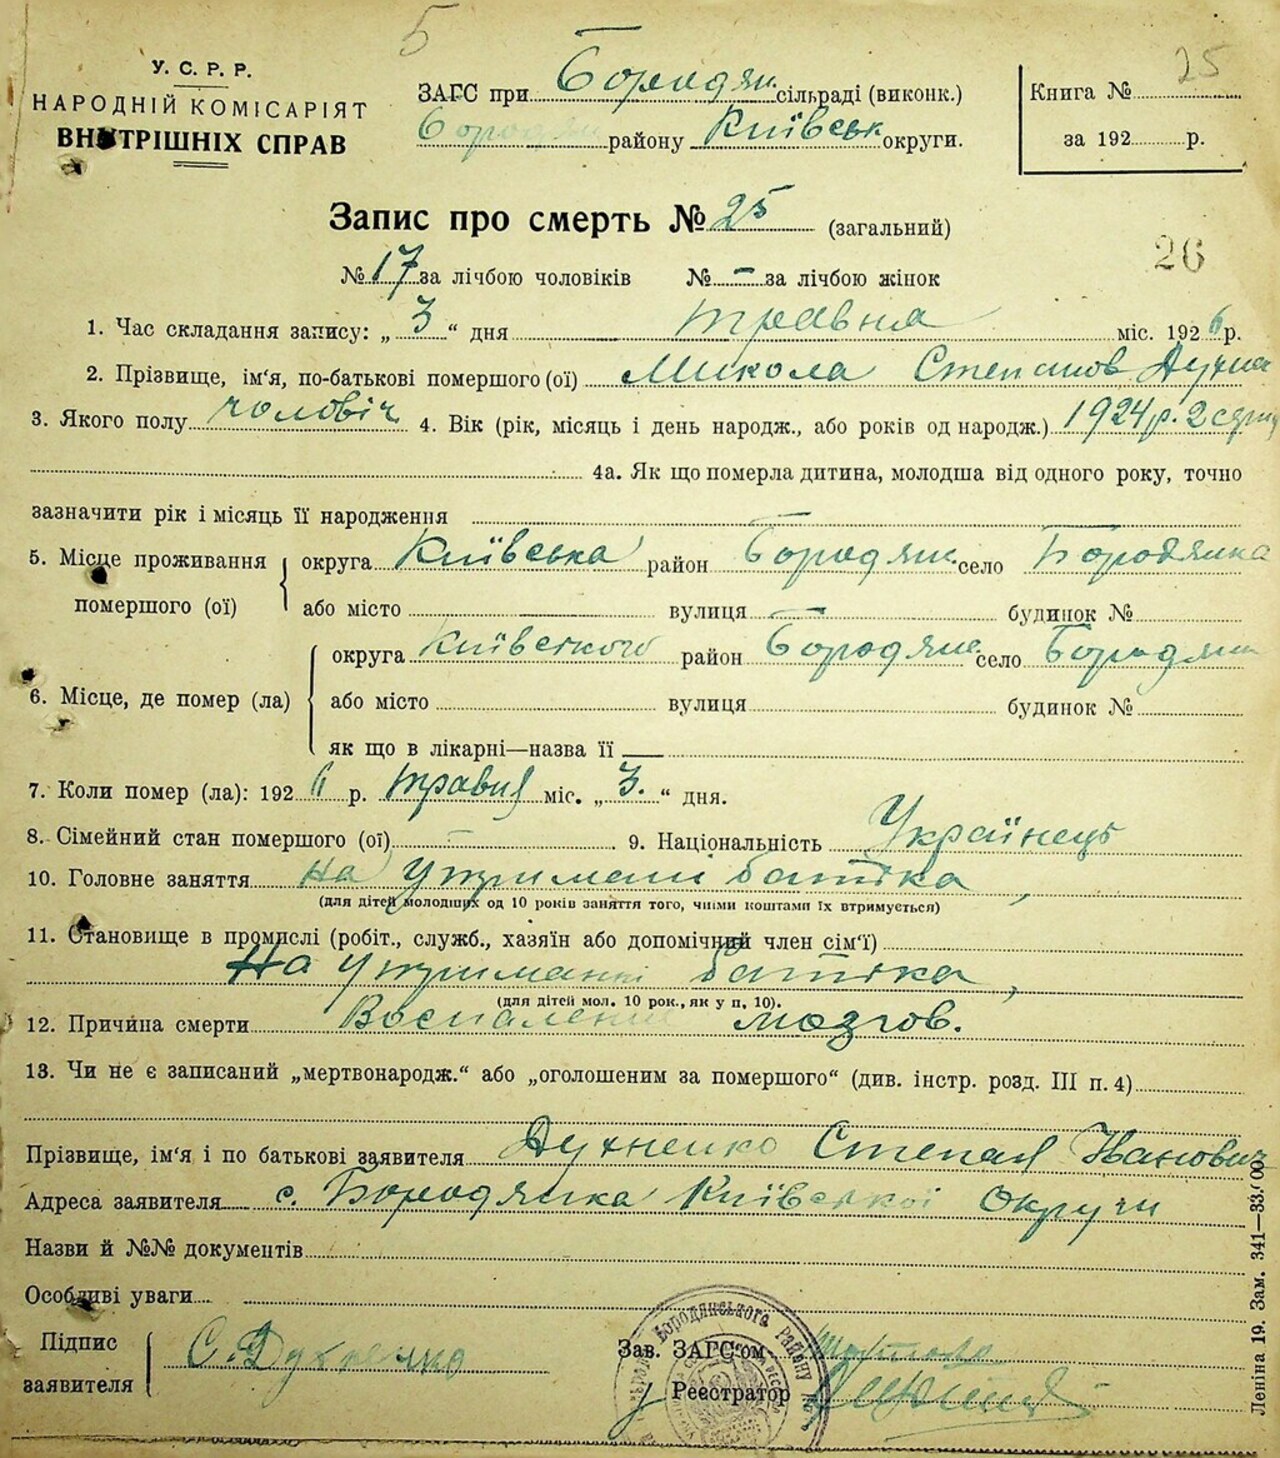 5
У. С. Р. Р.
НАРОДНІЙ КОМІСАРІЯТ
ВНУТРІШНІХ СПРАВ
ЗАГС при Бородян. сільраді (виконк.)
Бородян району Київськ округи.
Книга № 25
за 192 р.
Запис про смерть № 25 (загальний)
26
№ 17 за лічбою чоловіків № – за лічбою жінок
1. Час складання запису: „ 3 “ дня травня міс. 1926 р.
2. Прізвище, ім‘я, по-батькові помершого (ої) Микола Степанов
3. Якого полу чоловіч. 4. Вік (рік, місяць і день народж., або років од народж.) 1924 р. 2
4а. Як що померла дитина, молодша від одного року, точно
зазначити рік і місяць її народження
5. Місце проживання помершого (ої) округа Київська район Бородян. село Бородянка
або місто вулиця — будинок №
6. Місце, де помер (ла) округа Київського район Бородянс. село Бородянка
або місто вулиця будинок №
як що в лікарні—назва її —
7. Коли помер (ла): 1926 р. травня міс. „ 3. “ дня.
8. Сімейний стан помершого (ої) — 9. Національність Українець
10. Головне заняття на утримані батька,
(для дітей молодщих од 10 років заняття того, чиїми коштами їх втримується)
11. Становище в промислі (робіт., служб., хазяїн або допомічний член сім‘ї)
На утриманні батька,
(для дітей мол. 10 рок., як у п. 10).
12. Причина смерти Воспаление мозгов.
13. Чи не є записаний „мертвонародж.“ або „оголошеним за помершого“ (див. інстр. розд. III п. 4)
Прізвище, ім‘я і по батькові заявителя Духненко Степан Иванович
Адреса заявителя с. Бородянка Київської Округи
Назви й №№ документів
Особливі уваги
Підпис заявителя С. Духненко
Зав. ЗАГС‘ом
Реєстратор
Бородянського Району
Леніна 19. Зам. 341—33.000